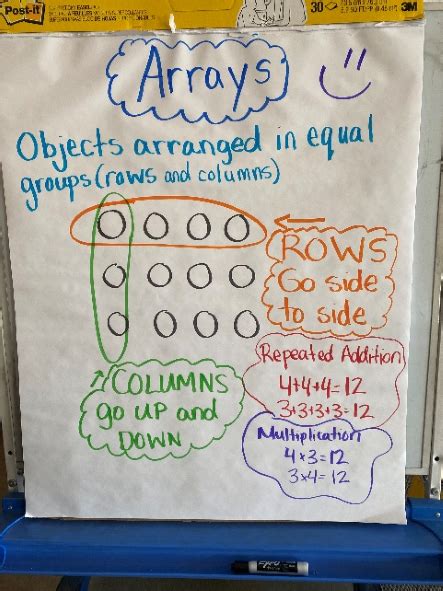 Post-it
30
3M
Arrays
Objects arranged in equal
groups (rows and columns)
ROWS
Go side
to side
COLUMNS
go UP and
DOWN
Repeated Addition
4+4+4=12
3+3+3+3=12
Multiplication
4x3=12
3x4=12